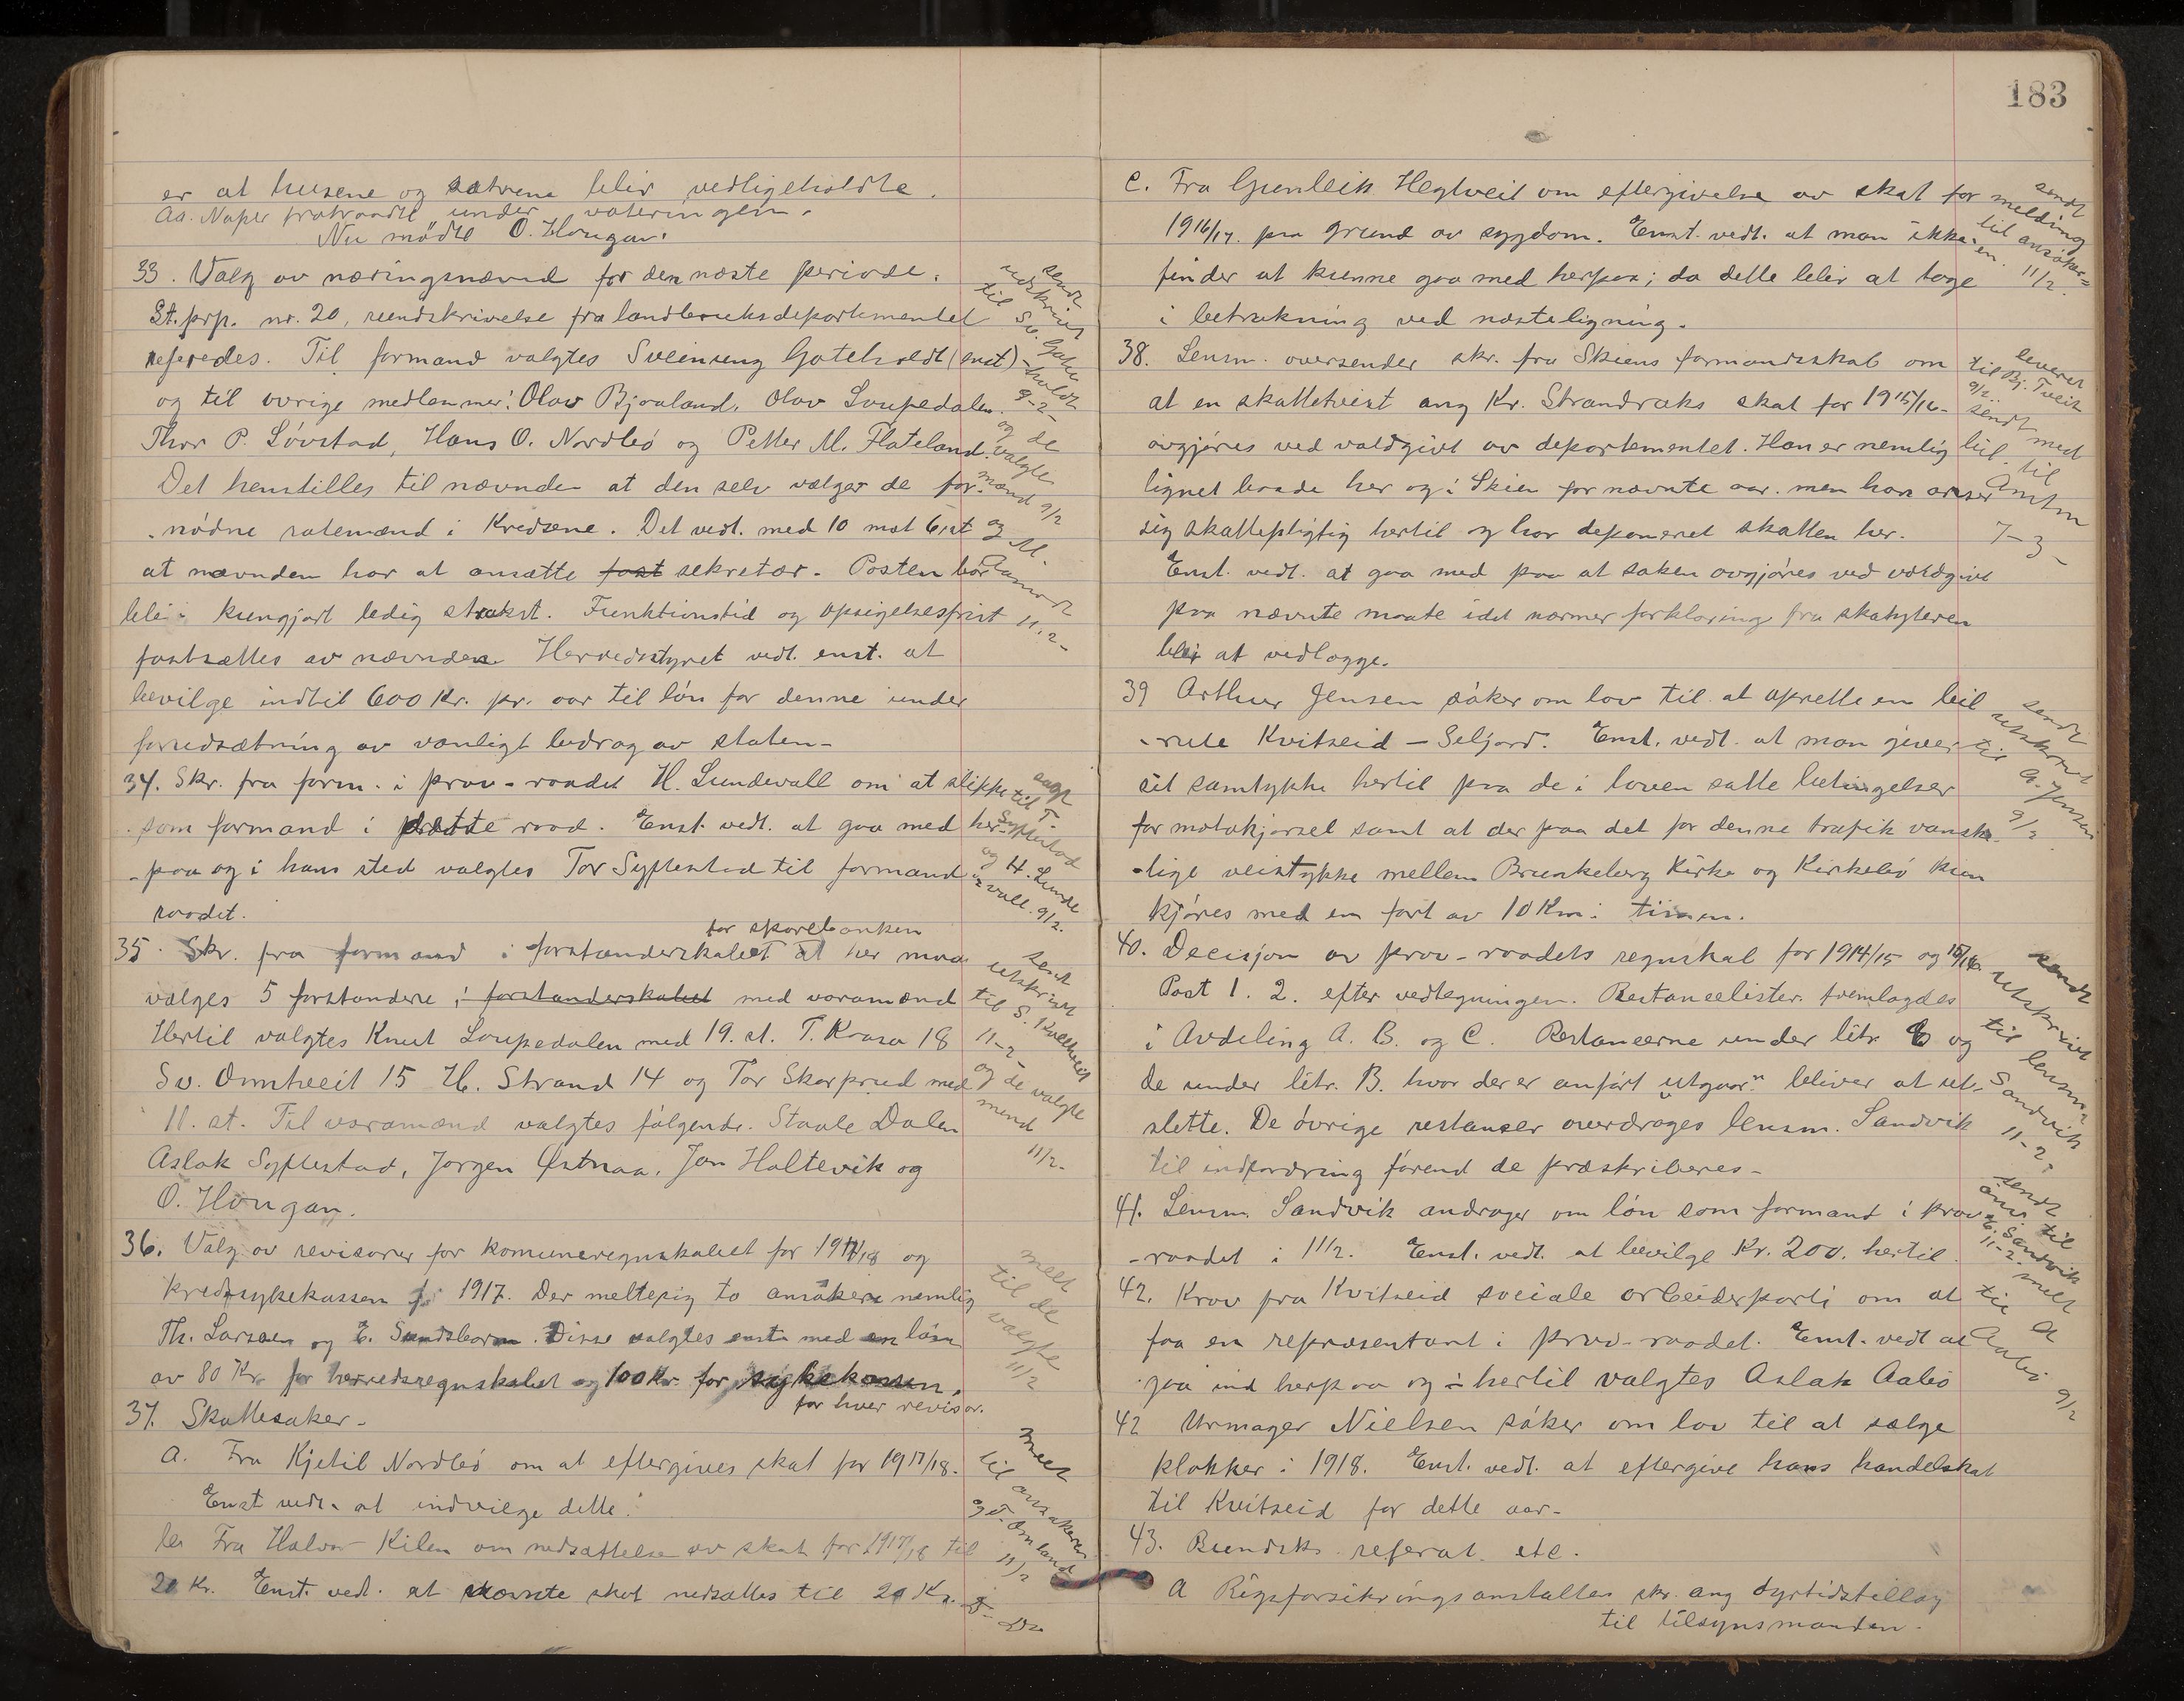 er at husene og sætrene blir vedligeholdte.
Aa. Naper fratraadte under voteringen.
Nu mødte O. Hougan.
33. Valg av næringsnævnd for den næste periode.
St. prp. nr. 20, rundskrivelse fra landbruksdepartementet
referedes. Til formand valgtes Sveinung Gotehuldt (enst)
og til øvrige medlemmer: Olav Bjaaland, Olav Loupedalen.
Thor P. Lövstad, Hans O. Nordbö og Petter M. Flateland.
Det henstilles til nævnden at den selv vælger de for-
-nödne rotemænd i Kredsene. Det vedt. med 10 mot 6 st
at nævnden har at ansætte fast sekretær. Posten bör
bli kungjort ledig strakst. Funktionstid og opsigelsesfrist
fastsættes av nævnden. Herredsstyret vedt. enst. at
bevilge indtil 600 Kr. pr. aar til lön for denne under
forudsætning av vanligt bidrag av staten.
34. Skr. fra form. i prov-raadet H. Lundevall om at slippe
som formand i dette raad. Enst. vedt. at gaa med her-
-paa og i hans sted valgtes Tor Syftestad til formand i
raadet.
for sparebanken
35. Skr. fra formand i forstanderskabet at her maa
vælges 5 forstandere i forstanderskabet med varamænd
Hertil valgtes Knut Loupedalen med 19. st. T. Kraasa 18
Sv. Omtveit 15 H. Strand 14 og Tor Skarprud med
11. st. Til varamænd valgtes følgende. Staale Dalen
Aslak Syftestad, Jørgen Østnaa, Jon Holtevik og
O. Hougan.
36. Valg av revisorer for komuneregnskabet for 1917/18 og
kredssykekassen for 1917. Der meldte sig to ansökere nemlig
Th. Larsen og E. Sundsbarm. Disse valgtes enst. med en lön
av 80 Kr. for herredsregnskabet og 100 Kr. for sykekassen,
for hver revisor.
37. Skattesaker.
A. Fra Kjetil Nordbö om at eftergives skat for 1917/18.
Enst vedt. at indvilge dette.
b. Fra Halvor Kilen om nedsættelse av skat for 1917/18 til
20 Kr. Enst. vedt. at nævnte skat nedsættes til 20 Kr.
sendt
utskrift
til
Sv. Gote-
huldt
9-2-
og de
valgte
mænd 9/2
og M.
Aamodt
11.2-
sagt
til T.
Syftestad
og H. Lunde
vall. 9/2.
sent
utskrift
til S.
11-2-
og de valgte
mend
11/2-
melt
til de
valgte
11/2
meelt
til
ansökeren
og T. Omland
11/2
183
C. Fra Gunleik Hegtveit om eftergivelse av skat for
1916/17. paa grund av sygdom. Enst. vedt. at man ikke
finder at kunne gaa med herpaa; da dette blir at tage
i betrakning ved næste ligning.
38. Lensm. oversender skr. fra Skiens formandsskab om
at en skattetvist ang Kr. Strandraks skat for 1915/16
avgjöres ved voldgivt av departementet. Han er nemlig
lignet baade her og i Skien for nævnte aar. men han anser
sig skattepligtig hertil og har deponeret skatten her.
Enst. vedt. at gaa med paa at saken avgjöres ved voldgivt
paa nævnte maate idet nærmer forklaring fra skatyteren
blir at vedlægge.
39 Arthur Jensen söker om lov til at oprette en bil
-rute Kvitseid - Seljord. Enst. vedt. at man giver
sit samtykke hertil paa de i loven satte betingelser
for motokjørsel samt at der paa det for denne trafik vanske-
-lige veistykke mellem Brunkeberg Kirke og Kirkebö kun
kjöres med en fart av 10 Km i timen.
40. Decisjon av prov-raadets regnskab for 1914/15 og 15/16.
Post 1. 2. efter vedtegningen. Restancelister fremlagdes
i Avdeling A. B. og C. Restancerne under litr. C og
de under litr. B. hvor der er anført „utgaar" bliver at ut-
slette. De övrige restanser overdrages lensm. Sandvik
til indfordring förend de præskriberes.
41. Lensm. Sandvik andrager om lön som formand i prov
-raadet i 1 1/2. Enst. vedt. at bevilge Kr. 200. hertil.
42. Krav fra Kvitseid sociale arbeiderparti om at
faa en repræsentant i prov-raadet. Enst. vedt at
gaa ind herpaa og hertil valgtes Aslak Aabö
42 Urmager Nielsen söker om lov til at sælge
klokker i 1918. Enst. vedt. at eftergive hans handelskat
til Kvitseid for dette aar.
43. Rundsk. referat. etc.
A Rigsforsikringsanstalten skr. ang dyrtidstillæg
til tilsynsmanden.
sendt
melding
til ansöker-
en. 11/2.
leveret
til Bj. Tveit
9/2.
sendt med
bil. til
Amtm
7-3-
sendt
utskrivt
til
A. Jensen
9/2
sendt
utskrivt
til lensm.
Sandvik
11-2.
sendt
til
Sandvik
11-2.
melt
til A
Aabö
9/2